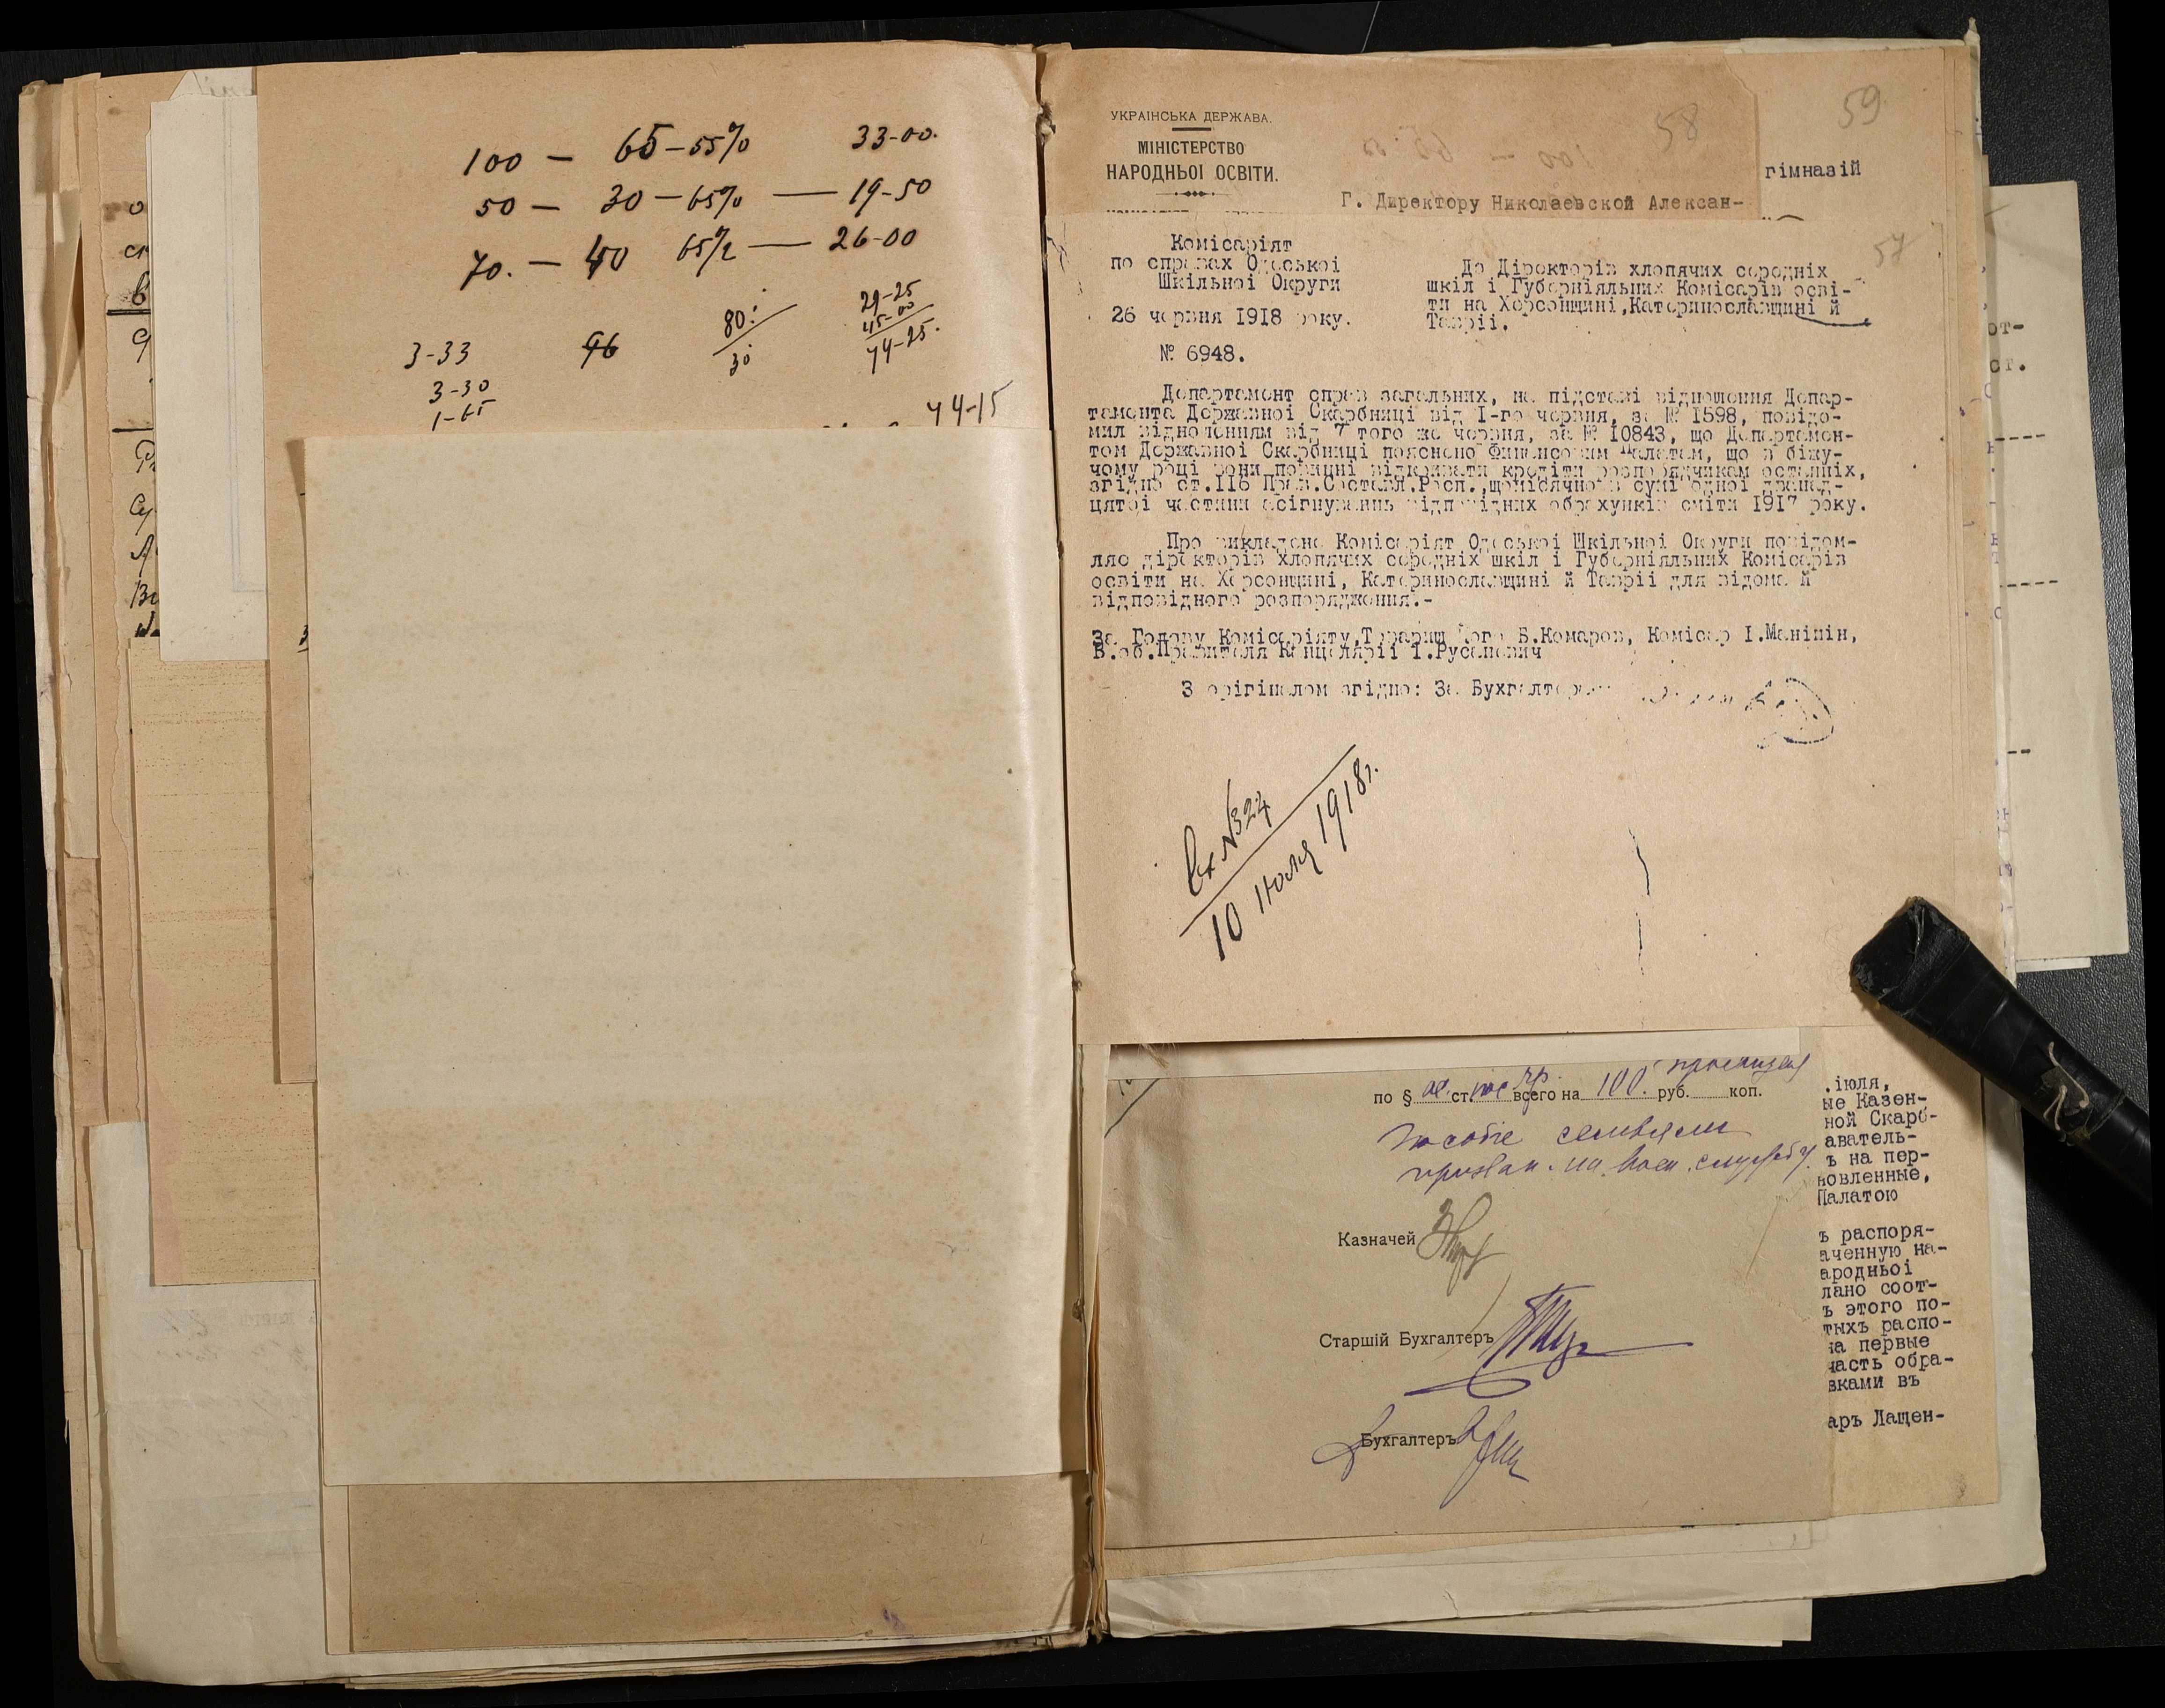 100 — 65-55% 33-00.
50 — 30 — 65% — 19-50
70. — 40 65% — 26-00
3-33 96 80: 30 29-25
45-00
74-25.
3-30
1-65
44-15
УКРАІНСЬКА ДЕРЖАВА.
МІНІСТЕРСТВО
НАРОДНЬОІ ОСВІТИ.
58
59
гімназій
Г. Директору Николаевской Алексан-
57
Комісаріят
по справах Одеської
Шкільної Округи
26 червня 1918 року.
№ 6948.
До Діректорів хлопячих середніх
шкіл і Губерніяльних Комісарів осві-
ти на Херсонщині,Катеринославщині й
Таврії.
Департамент справ загальних, на підставі відношення Депар-
тамента Державної Скарбниці від I-го червня, за № 1598, повідо-
мил відношенням від 7 того же червня, за № 10843, що Департамен-
том Державної Скарбниці пояснено Финансовим Палатам, що в біжу-
чому році вони повинні відкривати кредіти розпорядчикам останніх,
згідно ст.116 Прав.Составл.Росп.,щомісячно в сумі одної дванад-
цятої частини асігнувань відповідних обрахунків сміти 1917 року.
Про викладене Комісаріят Одеської Шкільної Округи повідом-
ляє діректорів хлопячих середніх шкіл і Губерніяльних Комісарів
освіти на Херсонщині, Катеринославщині й Таврії для відома й
відповідного розпорядження.-
За Голову Комісаріяту,Товариш Його Б.Комаров, Комісар І.Маніпін,
В.об.Правителя Канцелярії І.Русанович
З орігіналом згідно: За Бухгалтера
Вх №324
10 июля 1918г.
по § ст. всего на 100. руб. коп.
Пособіе семьямъ
призван. на воен. службу.
Казначей
Старшій Бухгалтеръ
Бухгалтеръ
.іюля,
ые Казен-
ной Скарб-
аватель-
ъ на пер-
новленные,
Палатою
ъ распоря-
аченную на-
ародньоі
лано соот-
ъ этого по-
тыхъ распо-
на первые
часть обра-
вками въ
аръ Лащен-
от-
ст.